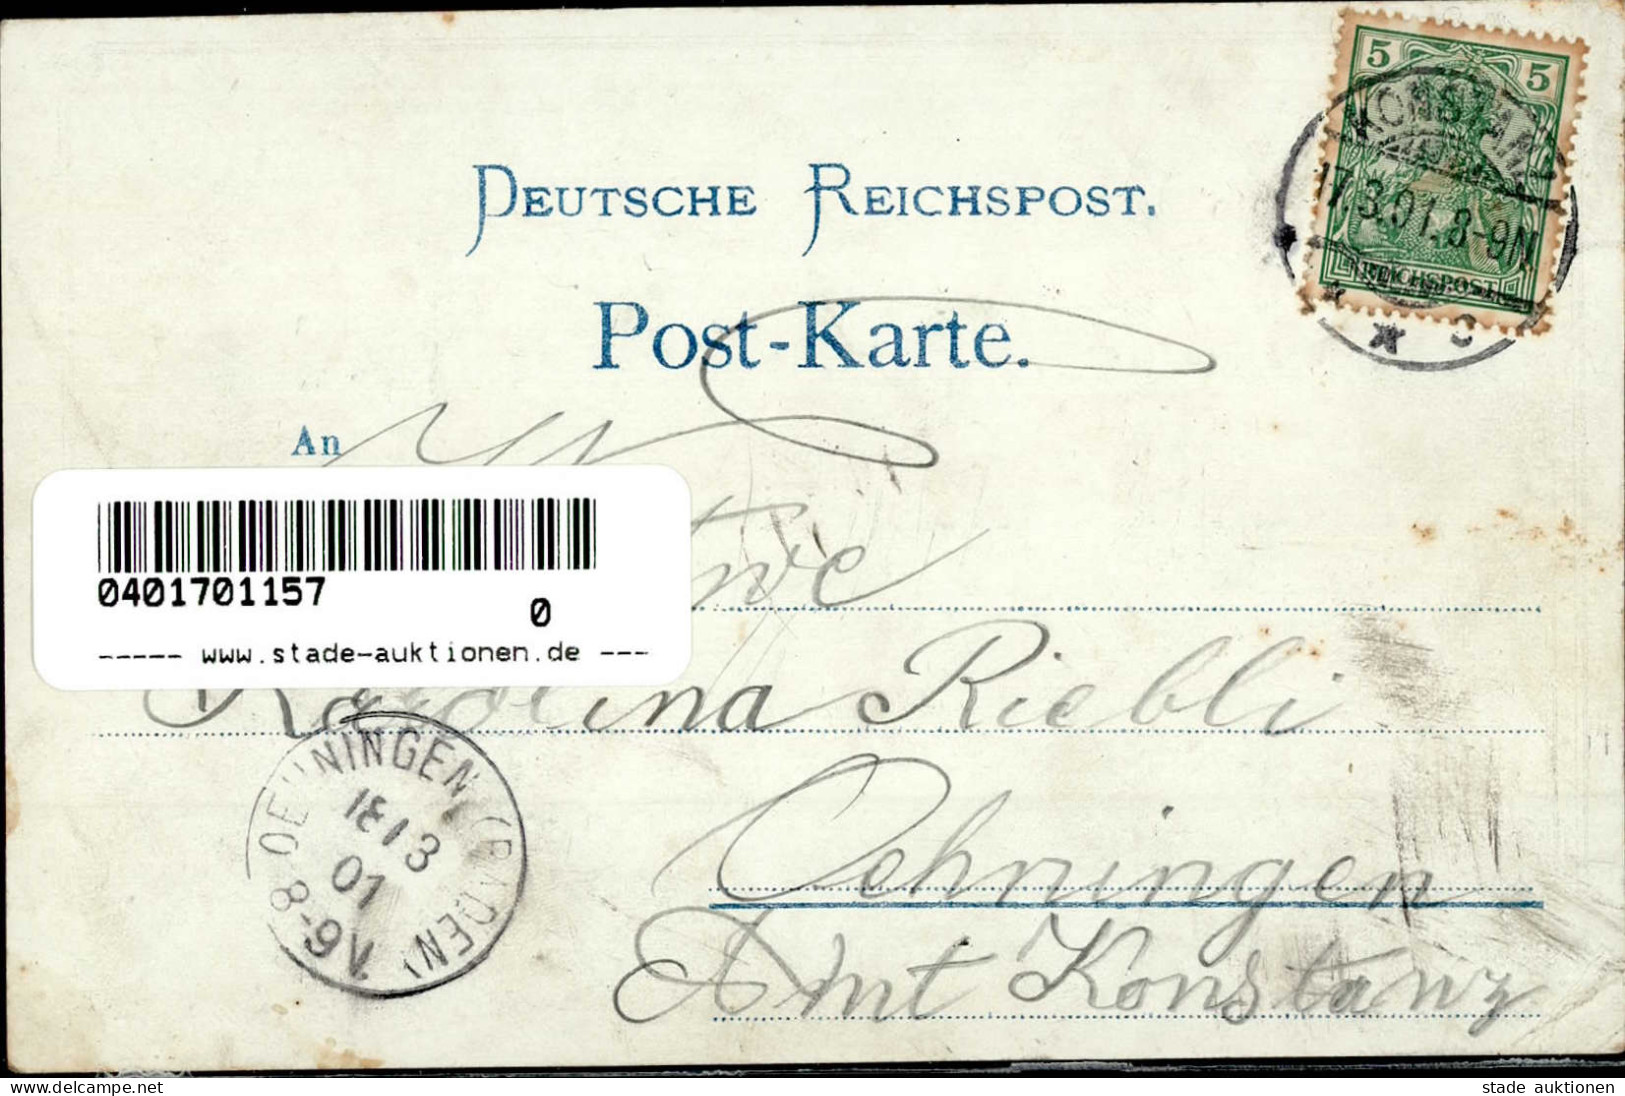 5 5
KONSTANZ
17.3.01.8-9N
REICHSPOST
* c
DEUTSCHE REICHSPOST.
Post-Karte.
An
0401701157
0
----- www.stade-auktionen.de ---
Karolina Riebli
OEHNINGEN (BADEN)
18/3
01
8-9V.
Oehningen
Amt Konstanz
stade auktionen
https://www.delcampe.net